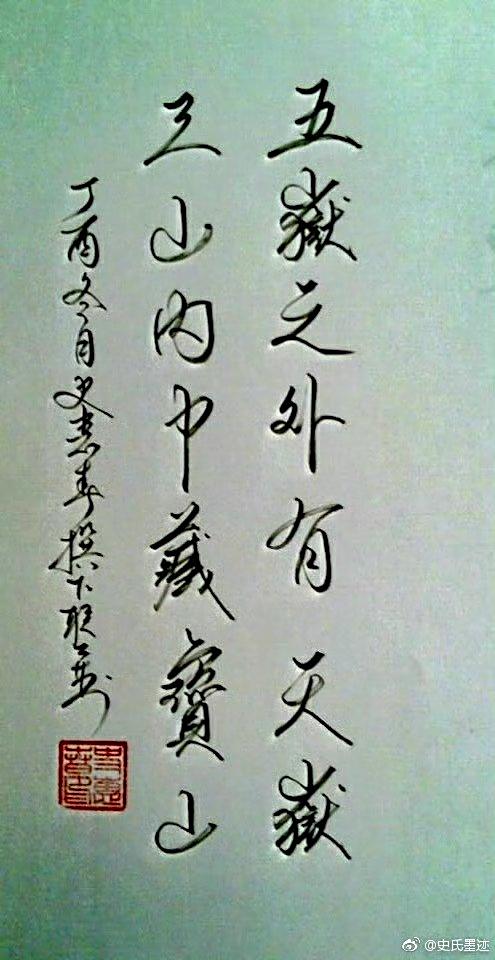 五嶽之外有天嶽
三山內中藏寶山
丁酉冬月史惠春撰下联并书
@史氏墨迹